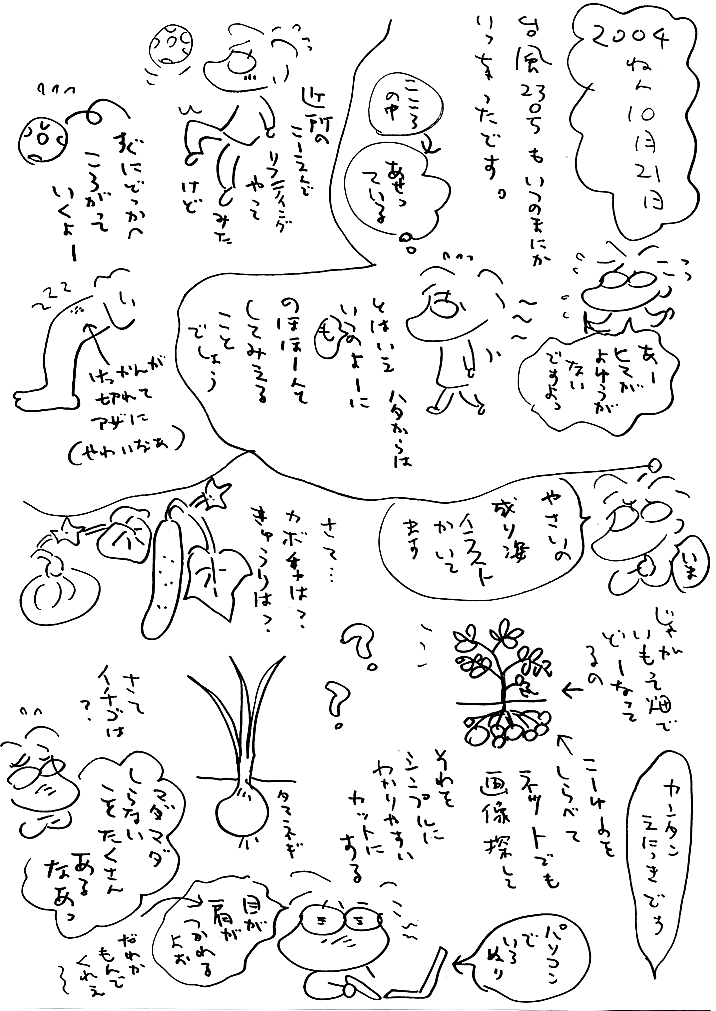 2004
ねん
10月21日
台風23ごうもいつのまにか
いっちゃったです。
こころ
の中
あせっ
ている
近所の
こーえんで
リフティング
やって
みた
けど
すぐにどっかへ
ころがって
いくよー
あー
ヒマが
よゆうが
ない
ですよっ
とはいえ ハタからは
いつものよーに
のほほーんて
してみえる
こと
でしょう
けっかんが
切れて
アザに
(やわいなあ)
いま
やさいの
成り姿
イラスト
かいて
ます
さて…
カボチャは?
きゅうりは?
じゃが
いもって畑で
どーなって
るの
こーゆのを
しらべて
ネットでも
画像探して
それを
シンプルに
わかりやすい
カットに
する
タマネギ
さて
イチゴは
?
マダマダ
しらない
ことたくさん
ある
なあっ
カンタン
えにっきどう
パソコン
で
いろ
ぬり
目が
肩が
つかれる
よお
だれか
もんで
くれえ
〜